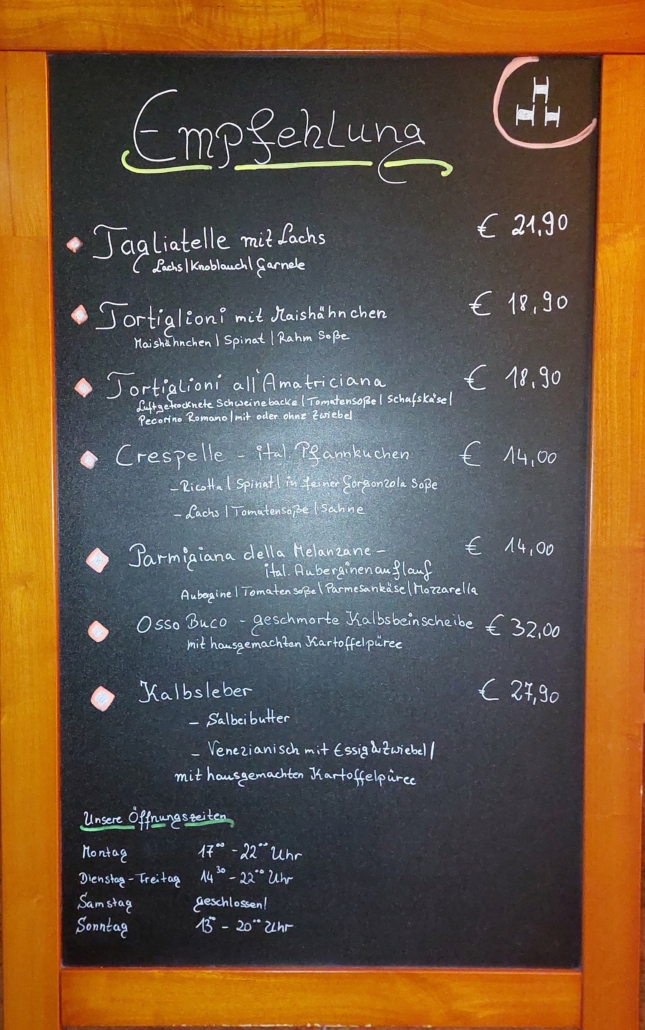 Empfehlung
Tagliatelle mit Lachs € 21,90
Lachs | Knoblauch | Garnele
Tortiglioni mit Maishähnchen € 18,90
Maishähnchen | Spinat | Rahm Soße
Tortiglioni all'Amatriciana € 18,90
Luftgetrocknete Schweinebacke | Tomatensoße | Schafskäse |
Pecorino Romano | mit oder ohne Zwiebel
Crespelle - ital. Pfannkuchen € 14,00
- Ricotta | Spinat | in feiner Gorgonzola Soße
- Lachs | Tomatensoße | Sahne
Parmigiana della Melanzane - € 14,00
ital. Auberginenauflauf
Aubergine | Tomatensoße | Parmesankäse | Mozzarella
Osso Buco - geschmorte Kalbsbeinscheibe € 32,00
mit hausgemachten Kartoffelpüree
Kalbsleber € 27,90
- Salbeibutter
- Venezianisch mit Essig & Zwiebel |
mit hausgemachten Kartoffelpüree
Unsere Öffnungszeiten
Montag 17°° - 22°° Uhr
Dienstag - Freitag 14³⁰ - 22°° Uhr
Samstag geschlossen!
Sonntag 13°° - 20°° Uhr